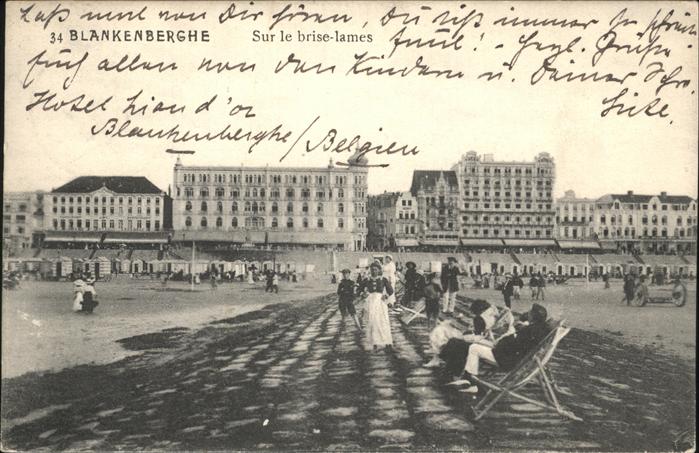 Laß mal von Dir hören, Du bist immer so schreib
34 BLANKENBERGHE Sur le brise-lames
faul! - Hrzl. Grüße
Euch allen von den Kindern u. Deiner Schw.
Hotel Lion d'or
Liese.
Blankenberghe / Belgien